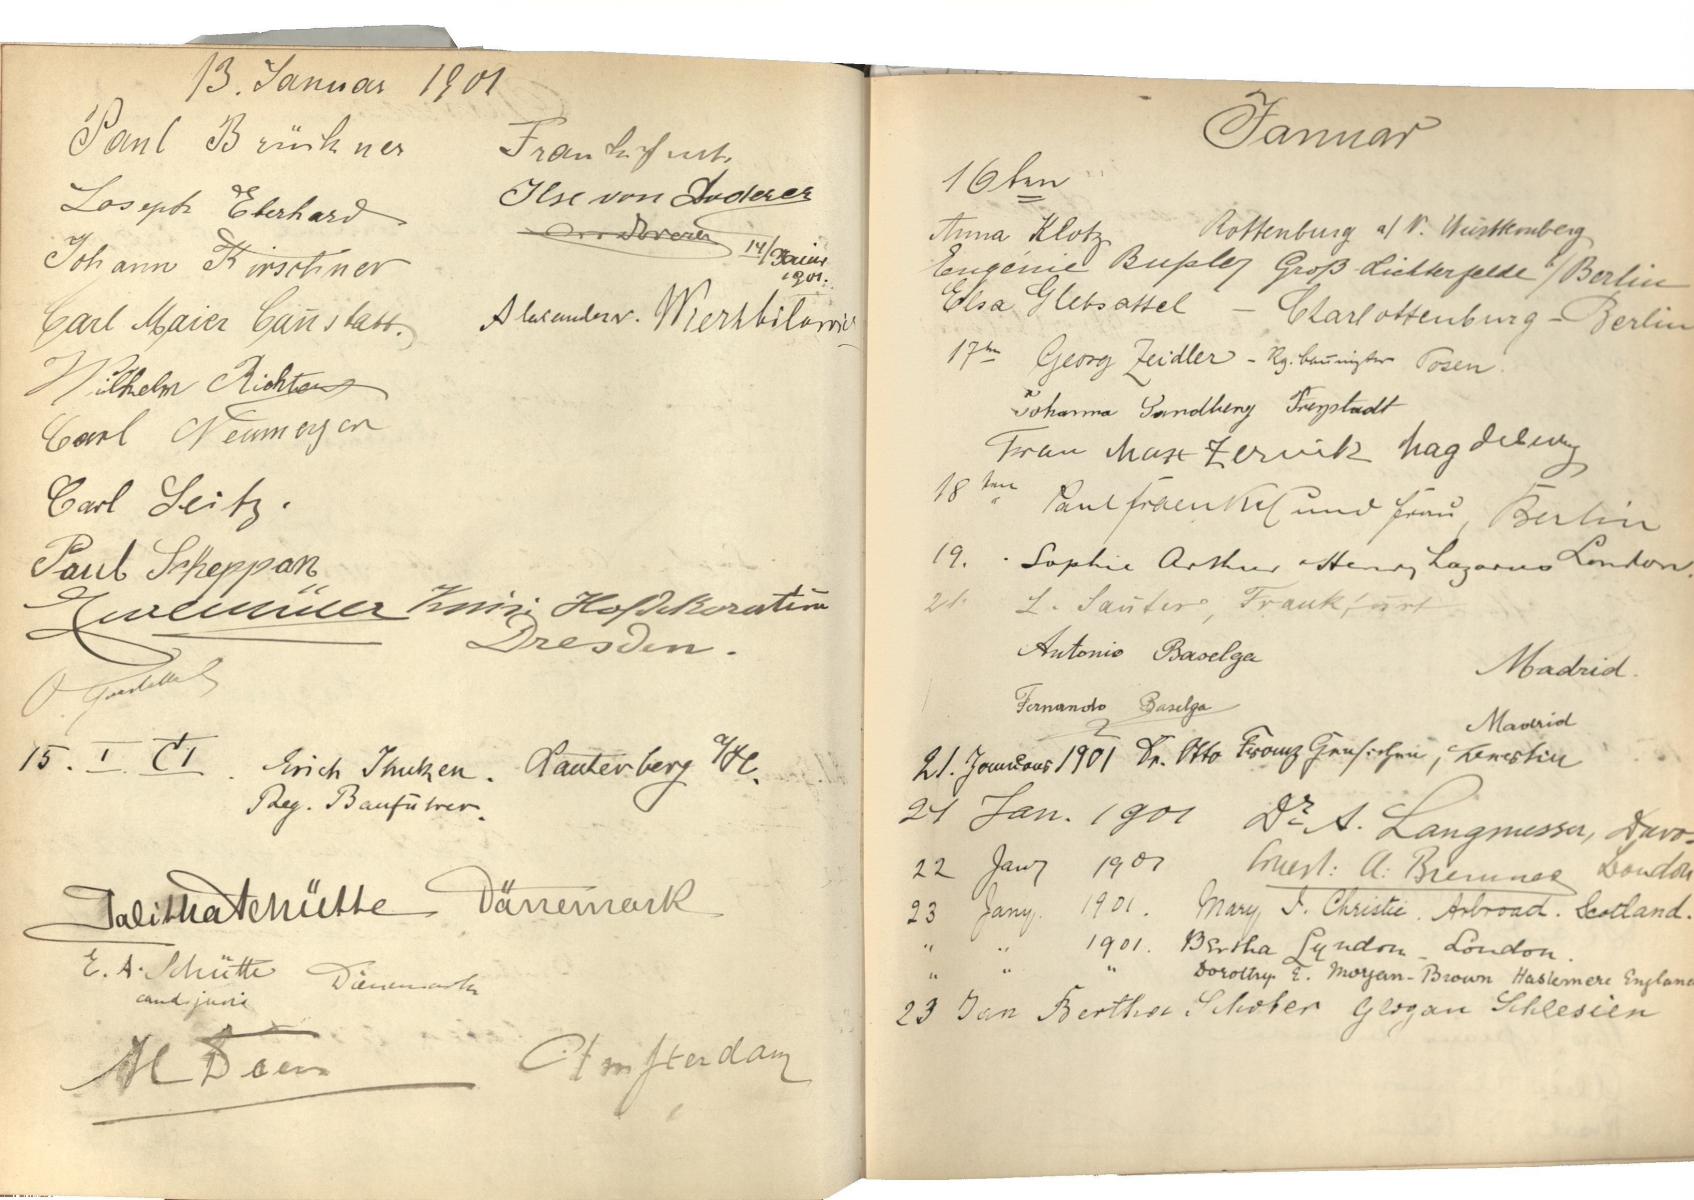 13. Januar 1901
Paul Brückner
Joseph Eberhard
Johann Kirschner
Carl Maier Cannstatt.
Wilhelm Richter
Carl Neumeyer
Carl Seitz.
Paul Skeppan
Hofdekorateur
Dresden.
Frankfurt.
Ilse von Doderer
14/Januar
1901.
Alexander Wierzbilowicz
15. I C I. Erich Thutzen. Lauterberg a/H.
Reg. Bauführer.
Talitha Schütte Dänemark
E. A. Schütte Dänemark
cand. juris
Amsterdam
Januar
16ten
Anna Klotz Rottenburg a/N. Württemberg
Eugénie Bußler Groß-Lichterfelde b/Berlin
Elsa Glebsattel – Charlottenburg – Berlin
17ten Georg Zeidler – Rg. baumeister Posen.
Johanna Sandberg Freystadt
Frau Max Zerwik Magdeburg
18ten Paul Fraenkel und Frau, Berlin
19. Sophie Arthur & Henry Lazarus London.
21. L. Sauter, Frankfurt
Antonio Baselga Madrid.
Fernando Baselga Madrid
21. Januar 1901 Dr. Otto Franz
21 Jan. 1901 Dr. A. Langmesser, Davos
22 Jany 1901 Ernest: A: Bremner London
23 Jany. 1901. Mary F. Christie. Arbroad. Scotland.
" " 1901. Bertha Lyndon – London.
" " " Dorothy E. Morgan-Brown Haslemere England
23 Jan Bertha Schober Glogau Schlesien